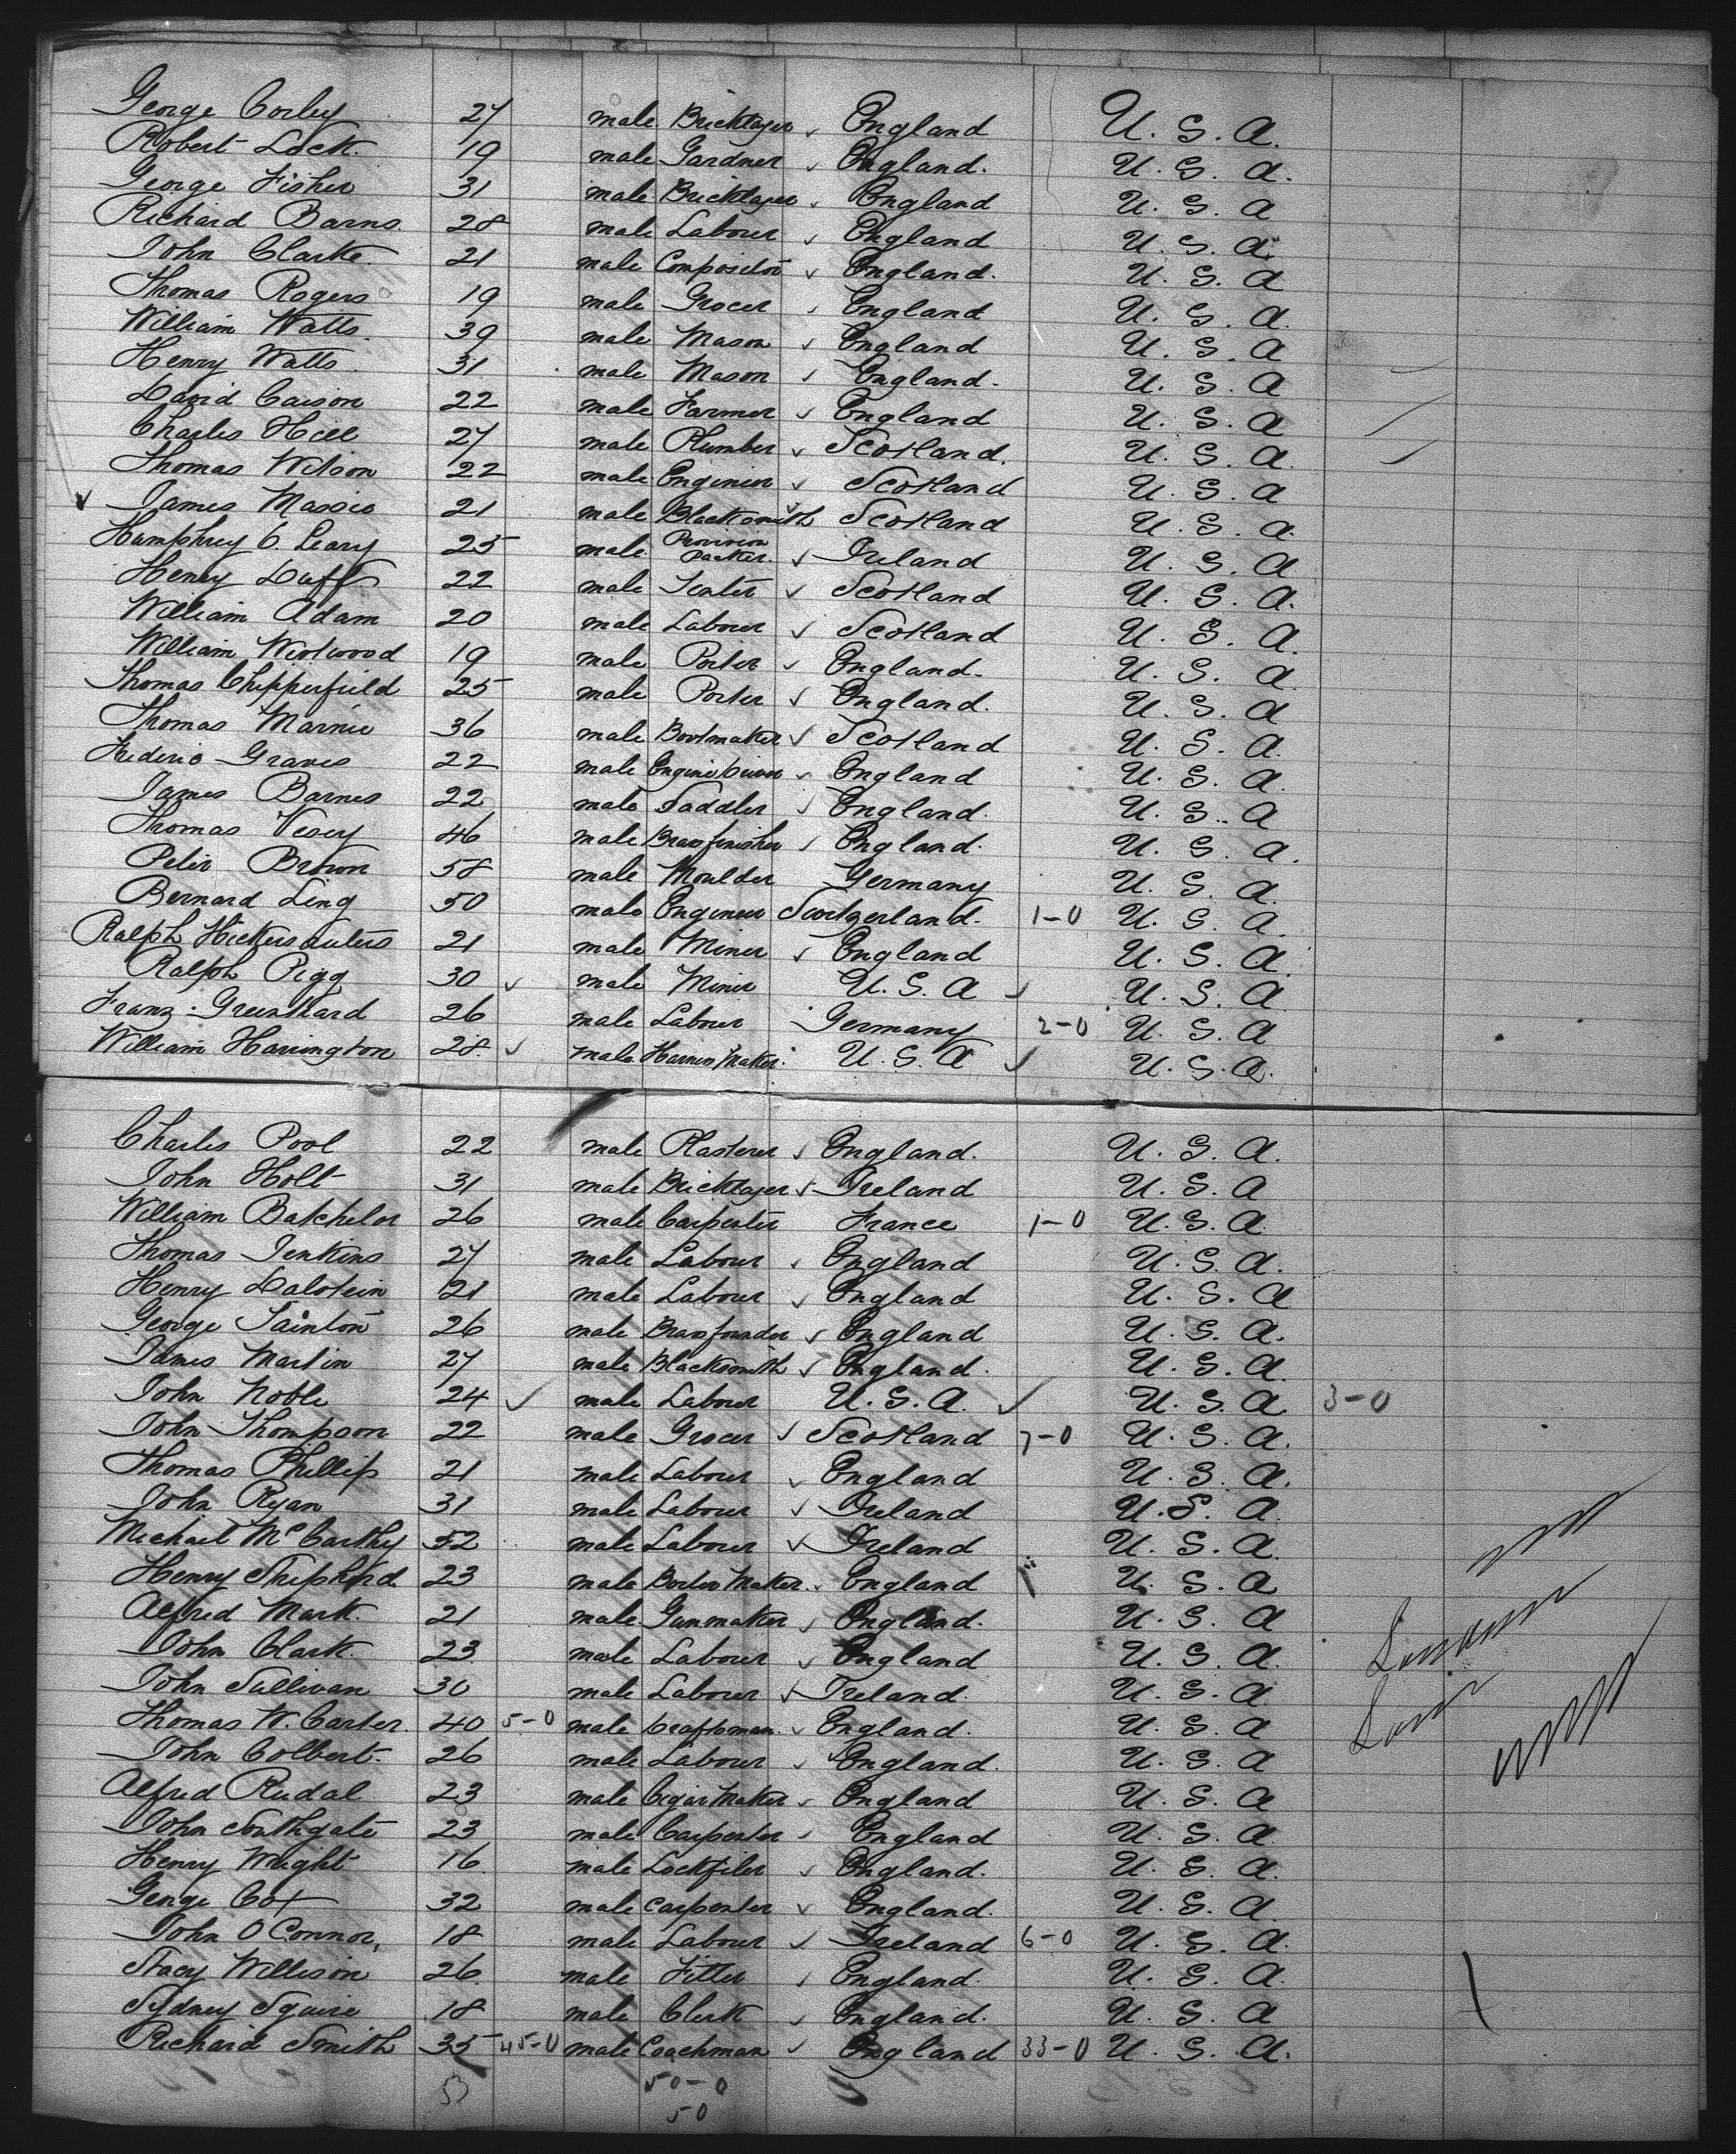 George Corley 27 male Bricklayer England U. S. A.
Robert Lock. 19 male Gardner England. U. S. A.
George Fisher 31 male Bricklayer England U. S. A
Richard Barns. 28 male Labour England U. S. A
John Clarke. 21 male Compositor England. U. S. A
Thomas Rogers 19 male Grocer England U. S. A.
William Watts. 39 male Mason England U. S. A
Henry Watts. 31 male Mason England. U. S. A
David Caison 22 male Farmer England U. S. A
Charles Hill 27 male Plumber Scotland. U. S. A.
Thomas Wilson 22 male Enginier Scotland U. S. A
James Massie 21 male Blacksmith Scotland U. S. A.
Humphrey O. Leary 25 male Provision Packer. Ireland U. S. A
Henry Duff 22 male Scotland U. S. A.
William Adam 20 male Labour Scotland U. S. A.
William Westwood 19 male Porter England. U. S. A
Thomas Chipperfield 25 male Porter England. U. S. A
Thomas Marnie 36 male Bootmaker Scotland U. S. A.
Frederic Graves 22 male Engine Driver England U. S. A.
James Barnes 22 male Saddler England. U. S. A
Thomas Vesey 46 male Brassfinisher England. U. S. A.
Peter Brown 58 male Moulder Germany U. S. A.
Bernard Ling 50 male Engineer Switzerland. 1-0 U. S. A.
Ralph 21 male Miner England U. S. A.
Ralph Pigg 30 male Miner U. S. A U. S. A
Franz 26 male Labour Germany 2-0 U. S. A
William Harrington 28. male Harness Maker. U. S. A U. S. A.
Charles Pool 22 male Plasterer England. U. S. A.
John Holt 31 male Bricklayer Ireland U. S. A
William Batchelor 26 male Carpenter France 1-0 U. S. A
Thomas Jenkins 27 male Labour England U. S. A.
Henry Dalstein 21 male Labour England U. S. A
George Tainton 26 male Brassfounder England U. S. A.
James Martin 27 male Blacksmith England. U. S. A.
John Noble 24 male Labour U. S. A. U. S. A. 3-0
John Thompson 22 male Grocer Scotland 7-0 U. S. A.
Thomas Phillip 21 male Labour England U. S. A.
John Ryan 31 male Labour Ireland U. S. A.
Michael Mc Carthy 52 male Labour Ireland U. S. A.
Henry Shepherd 23 male Boiler Maker. England U. S. A
Alfred Mark. 21 male Gunmaker England. U. S. A
John Clark. 23 male Labour England U. S. A.
John Sullivan 30 male Labour Ireland. U. S. A
Thomas W. Carter. 40 5-0 male Craftsman. England. U. S. A
John Colbert. 26 male Labour England. U. S. A
Alfred Rudal 23 male Cigar Maker England U. S. A
John Southgate 23 male Carpenter England U. S. A.
Henry Wright 16 male Lockfiler England. U. S. A.
George Cox 32 male Carpenter England. U. S. A
John O Connor, 18 male Labour Ireland 6-0 U. S. A.
Stacy Willison 26 male Fitter England. U. S. A.
Sydney Squire 18 male Clerk England. U. S. A
Richard Smith 35 45-0 male Coachman England 33-0 U. S. A.
53 50-0
50